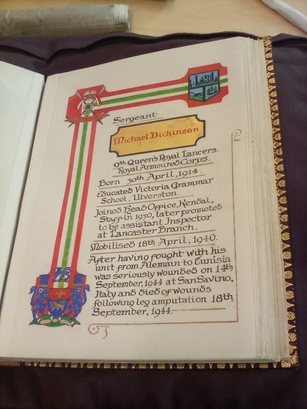 Sergeant
Michael Dickinson
9th Queen's Royal Lancers.
Royal Armoured Corps.
Born 30th April, 1914.
Educated Victoria Grammar
School, Ulverston
Joined Head Office, Kendal,
Staff in 1930, later promoted
to be assistant Inspector
at Lancaster Branch.
Mobilised 18th April, 1940.
After having fought with his
unit from Alemain to Tunisia
was seriously wounded on 14th
September, 1944 at San Savino,
Italy and died of wounds
following leg amputation 18th
September, 1944.